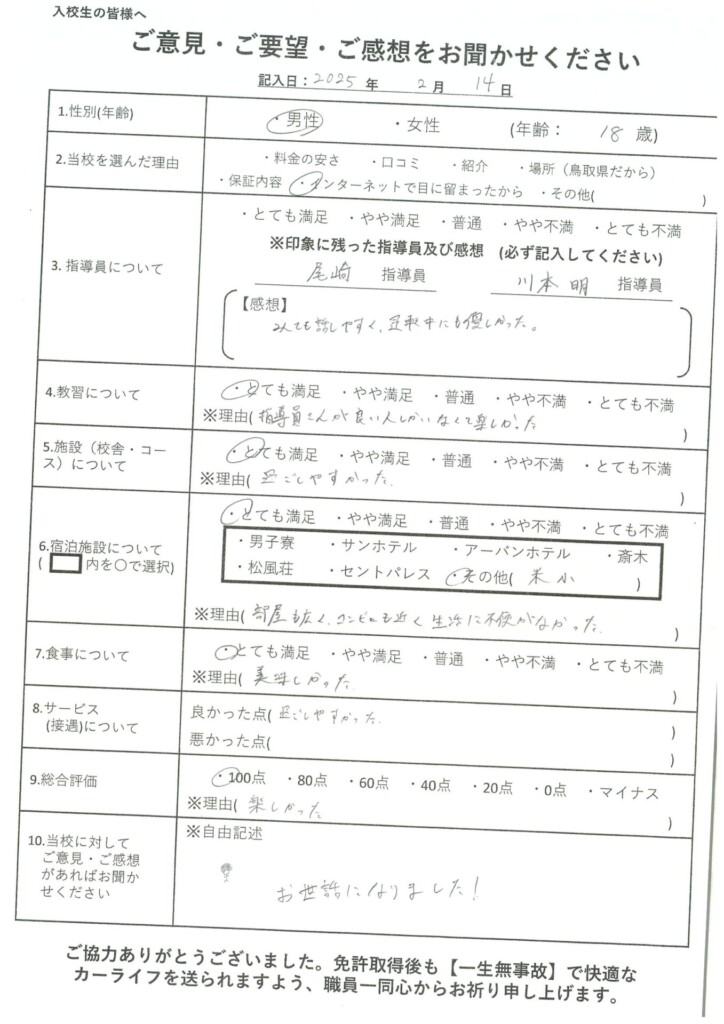 入校生の皆様へ
ご意見・ご要望・ご感想をお聞かせください
記入日：2025 年 2 月 14 日
1.性別(年齢) ・男性 ・女性 (年齢： 18 歳)
2.当校を選んだ理由 ・料金の安さ ・口コミ ・紹介 ・場所（鳥取県だから）
・保証内容 ・インターネットで目に留まったから ・その他( )
3. 指導員について ・とても満足 ・やや満足 ・普通 ・やや不満 ・とても不満
※印象に残った指導員及び感想 (必ず記入してください)
尾崎 指導員 川本 明 指導員
【感想】
とても話しやすく、運転中にも優しかった。
4.教習について ・とても満足 ・やや満足 ・普通 ・やや不満 ・とても不満
※理由( 指導員さんが良い人しかいなくて楽しかった )
5.施設（校舎・コース）について ・とても満足 ・やや満足 ・普通 ・やや不満 ・とても不満
※理由( 過ごしやすかった. )
6.宿泊施設について ・とても満足 ・やや満足 ・普通 ・やや不満 ・とても不満
( 内を〇で選択) ・男子寮 ・サンホテル ・アーバンホテル ・斎木
・松風荘 ・セントパレス ・その他( 米小 )
※理由( 部屋も広く、コンビニも近く生活に不便がなかった. )
7.食事について ・とても満足 ・やや満足 ・普通 ・やや不満 ・とても不満
※理由( 美味しかった. )
8.サービス(接遇)について 良かった点( 過ごしやすかった. )
悪かった点( )
9.総合評価 ・100点 ・80点 ・60点 ・40点 ・20点 ・0点 ・マイナス
※理由( 楽しかった )
10.当校に対してご意見・ご感想があればお聞かせください ※自由記述
お世話になりました！
ご協力ありがとうございました。免許取得後も【一生無事故】で快適な
カーライフを送られますよう、職員一同心からお祈り申し上げます。